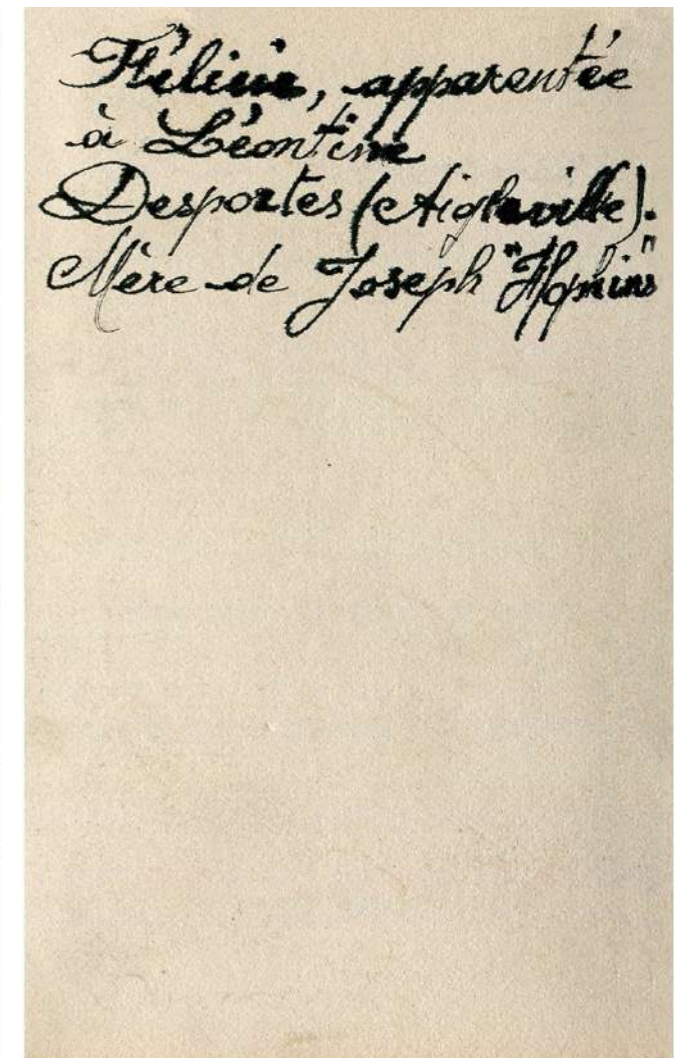 Féline, apparentée
à Léontine
Desportes (Aigleville).
Mère de Joseph "Hopkins"